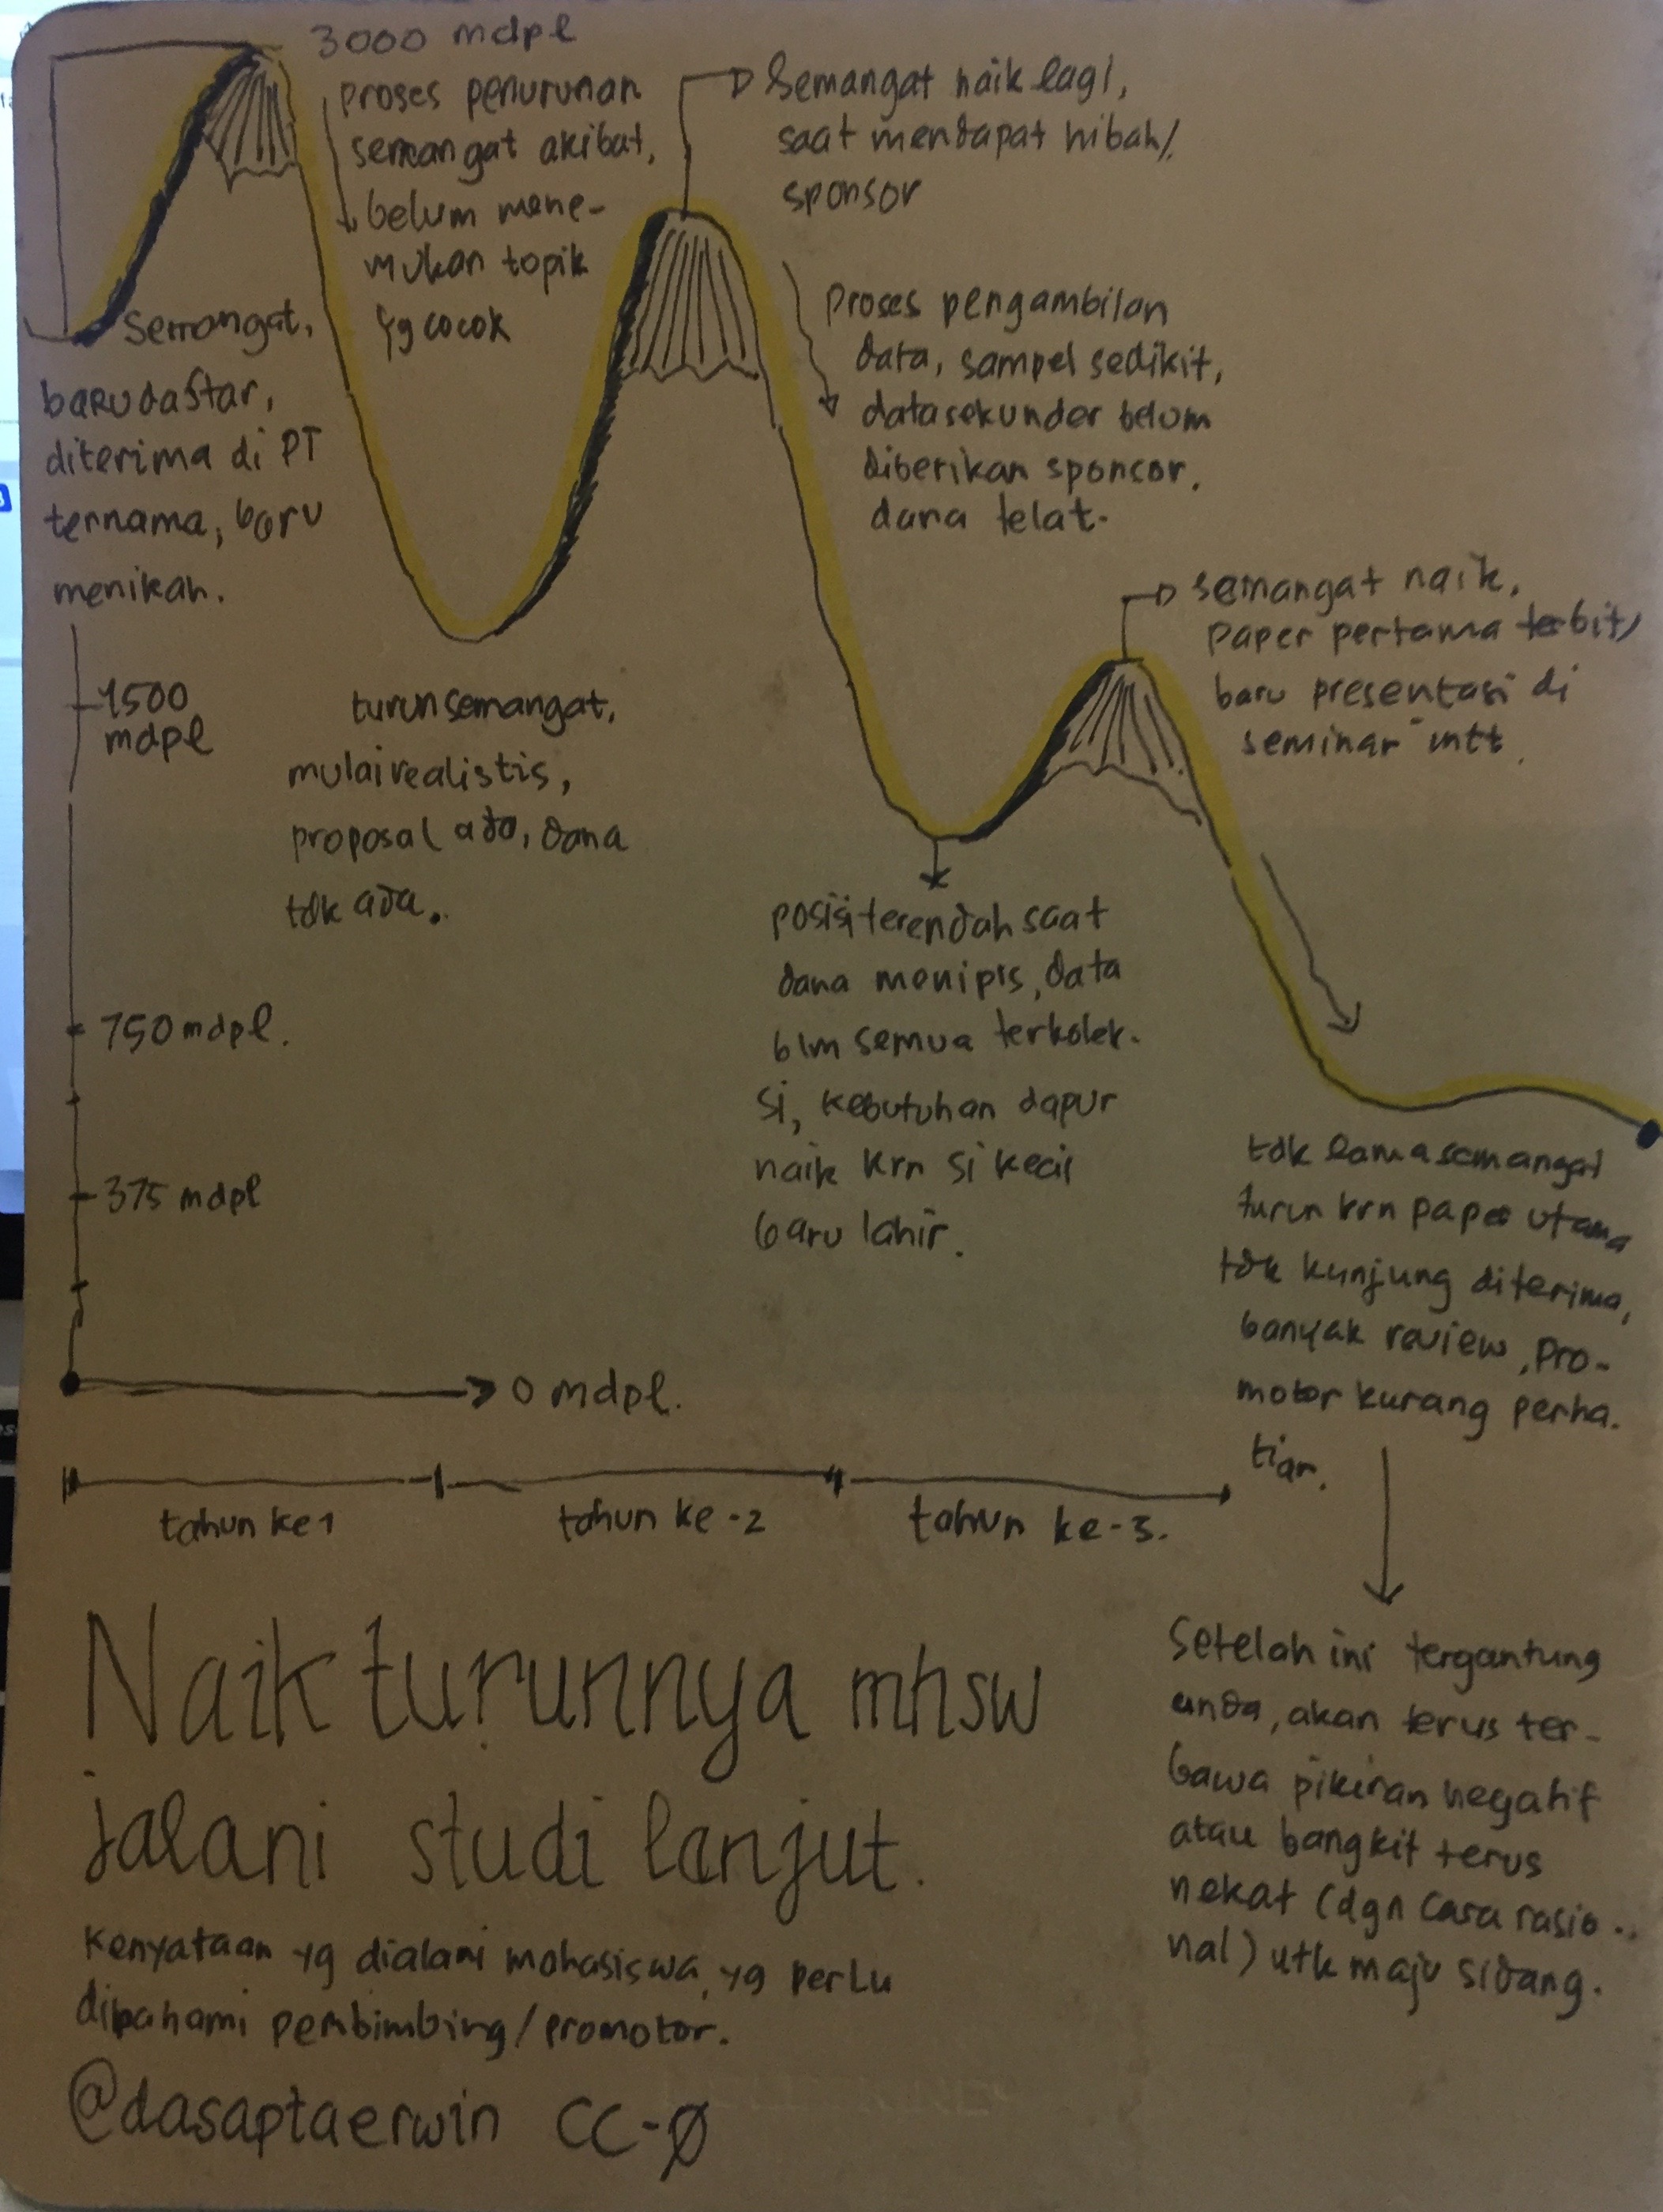 3000 mdpl
proses penurunan
semangat akibat,
belum mene-
mukan topik
yg cocok
Semangat naik lagi,
saat mendapat hibah/
sponsor
Semangat,
baru daftar,
diterima di PT
ternama, baru
menikah.
Proses pengambilan
data, sampel sedikit,
data sekunder belum
diberikan sponsor.
dana telat.
semangat naik,
paper pertama terbit/
baru presentasi di
seminar intt.
1500
mdpl
turun semangat,
mulai realistis,
proposal ada, dana
tdk ada.
750 mdpl.
375 mdpl
0 mdpl.
posisi terendah saat
dana menipis, data
blm semua terkolek-
si, kebutuhan dapur
naik krn si kecil
baru lahir.
tdk lama semangat
turun krn paper utama
tdk kunjung diterima,
banyak review, pro-
motor kurang perha-
tian.
tahun ke 1
tahun ke-2
tahun ke-3.
Setelah ini tergantung
anda, akan terus ter-
bawa pikiran negatif
atau bangkit terus
nekat (dgn cara rasio-
nal) utk maju sidang.
Naik turunnya mhsw
jalani studi lanjut.
Kenyataan yg dialami mahasiswa, yg perlu
dipahami pembimbing/promotor.
@dasaptaerwin CC-Ø